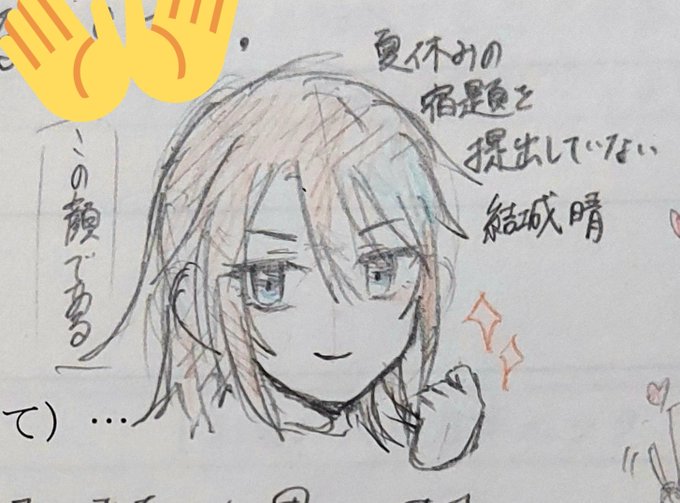 夏休みの
宿題を
提出していない
結城晴
この顔である
て）…